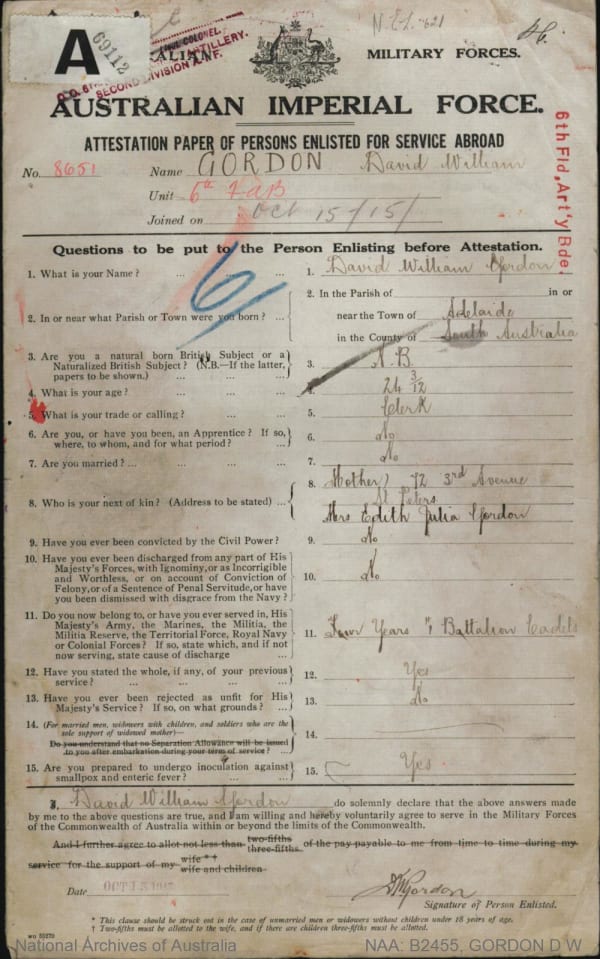 A
69112
SECOND DIVISION A.I.F.
MILITARY FORCES.
AUSTRALIAN IMPERIAL FORCE.
ATTESTATION PAPER OF PERSONS ENLISTED FOR SERVICE ABROAD
No. 8651 Name GORDON David William
Unit 6th FAB
Joined on Oct 15/15/
6th Fld. Art'y Bde.
Questions to be put to the Person Enlisting before Attestation.
6
1. What is your Name? ... ... ... 1. David William Gordon
2. In or near what Parish or Town were you born? ... 2. In the Parish of in or
near the Town of Adelaide
in the County of South Australia
3. Are you a natural born British Subject or a
Naturalized British Subject? (N.B.—If the latter,
papers to be shown.) ... ... 3. N.B.
4. What is your age? ... ... ... 4. 24 3/12
5. What is your trade or calling? ... ... 5. Clerk
6. Are you, or have you been, an Apprentice? If so,
where, to whom, and for what period? ... 6. No
7. Are you married? ... ... ... ... 7. No
8. Who is your next of kin? (Address to be stated) ... 8. Mother) 72 3rd Avenue
St Peters
Mrs Edith Julia Gordon
9. Have you ever been convicted by the Civil Power? 9. No
10. Have you ever been discharged from any part of His
Majesty's Forces, with Ignominy, or as Incorrigible
and Worthless, or on account of Conviction of
Felony, or of a Sentence of Penal Servitude, or have
you been dismissed with disgrace from the Navy? 10. No
11. Do you now belong to, or have you ever served in, His
Majesty's Army, the Marines, the Militia, the
Militia Reserve, the Territorial Force, Royal Navy
or Colonial Forces? If so, state which, and if not
now serving, state cause of discharge ... 11. Four Years Battalion Cadets
12. Have you stated the whole, if any, of your previous
service? ... ... ... ... 12. Yes
13. Have you ever been rejected as unfit for His
Majesty's Service? If so, on what grounds? ... 13. No
14. (For married men, widowers with children, and soldiers who are the
sole support of widowed mother)—
Do you understand that no Separation Allowance will be issued
to you after embarkation during your term of service? 14.
15. Are you prepared to undergo inoculation against
smallpox and enteric fever? ... ... 15. Yes
I, David William Gordon do solemnly declare that the above answers made
by me to the above questions are true, and I am willing and hereby voluntarily agree to serve in the Military Forces
of the Commonwealth of Australia within or beyond the limits of the Commonwealth.
And I further agree to allot not less than two-fifths three-fifths of the pay payable to me from time to time during my
service for the support of my wife *† wife and children
Date OCT 15 1915 DWGordon
Signature of Person Enlisted.
* This clause should be struck out in the case of unmarried men or widowers without children under 18 years of age.
† Two-fifths must be allotted to the wife, and if there are children three-fifths must be allotted.
National Archives of Australia NAA: B2455, GORDON D W